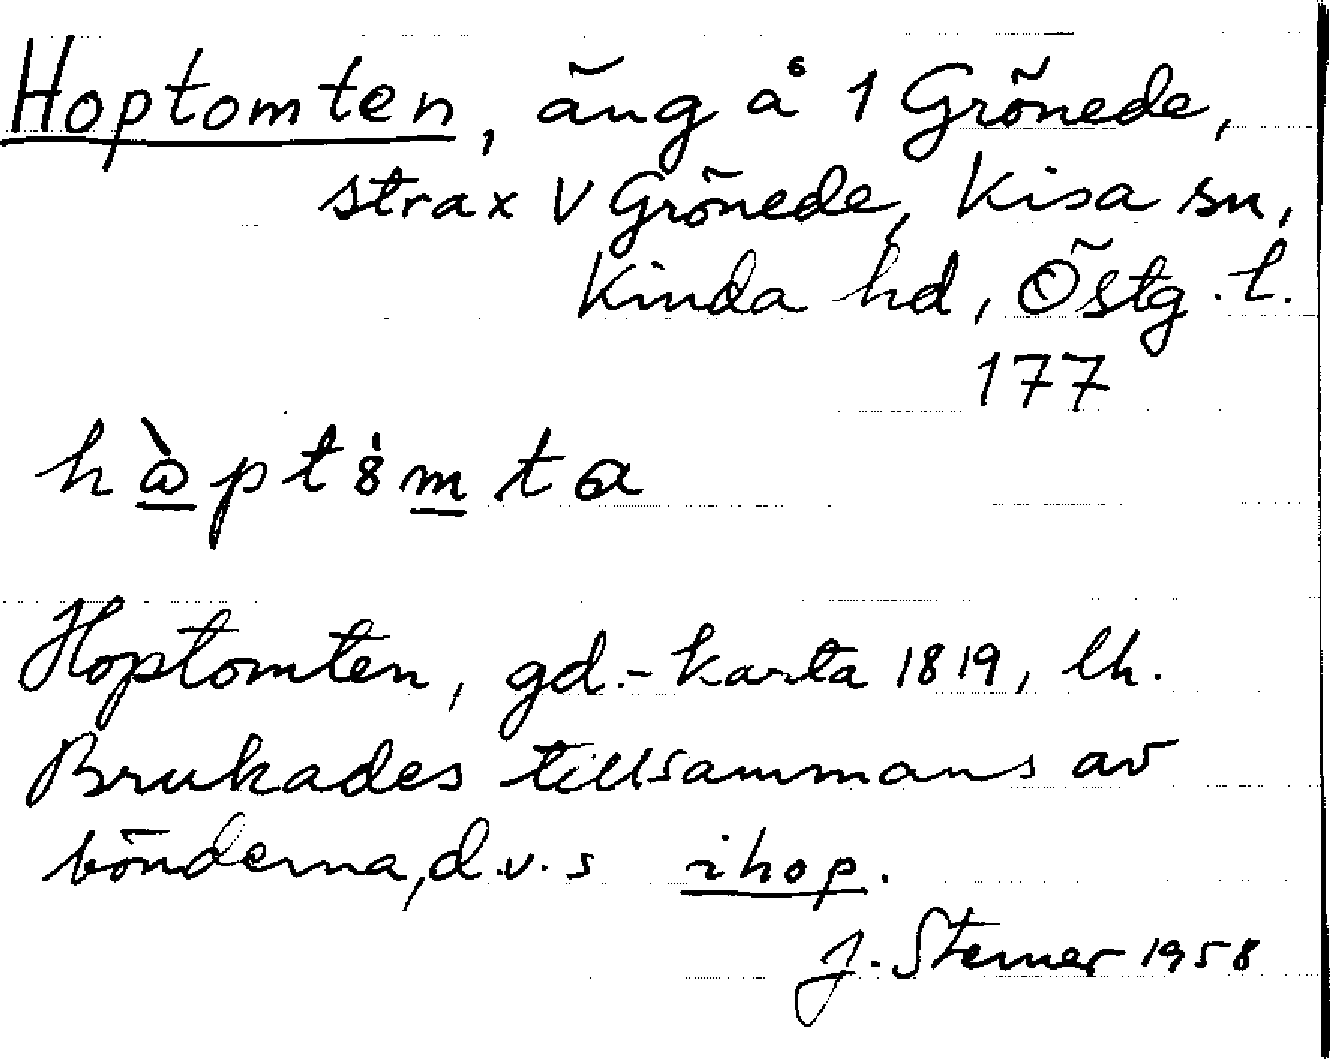 Hoptomten, äng å 1 Grönede,
strax V Grönede, Kisa sn,
Kinda hd, Östg. l.
177
Hoptomten, gd.-karta 1819, lh.
Brukades tillsammans av
bönderna, d.v.s ihop.
J. Sterner 1958